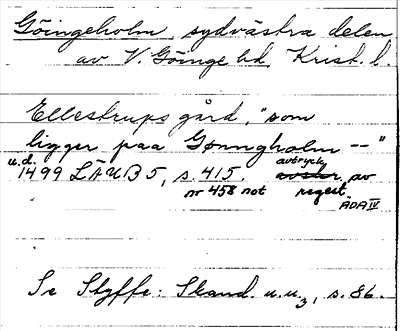 Göingeholm, sydvästra delen
av V. Göinge hd Krist. l.
Ellestrups gård, "som
ligger paa Gønngholm --"
u.d.
1499 LÄUB 5, s. 415. avtryck av
nr 458 not regest.
ÄDA III
Se Styffe: Skand. u.u.3, s. 86.